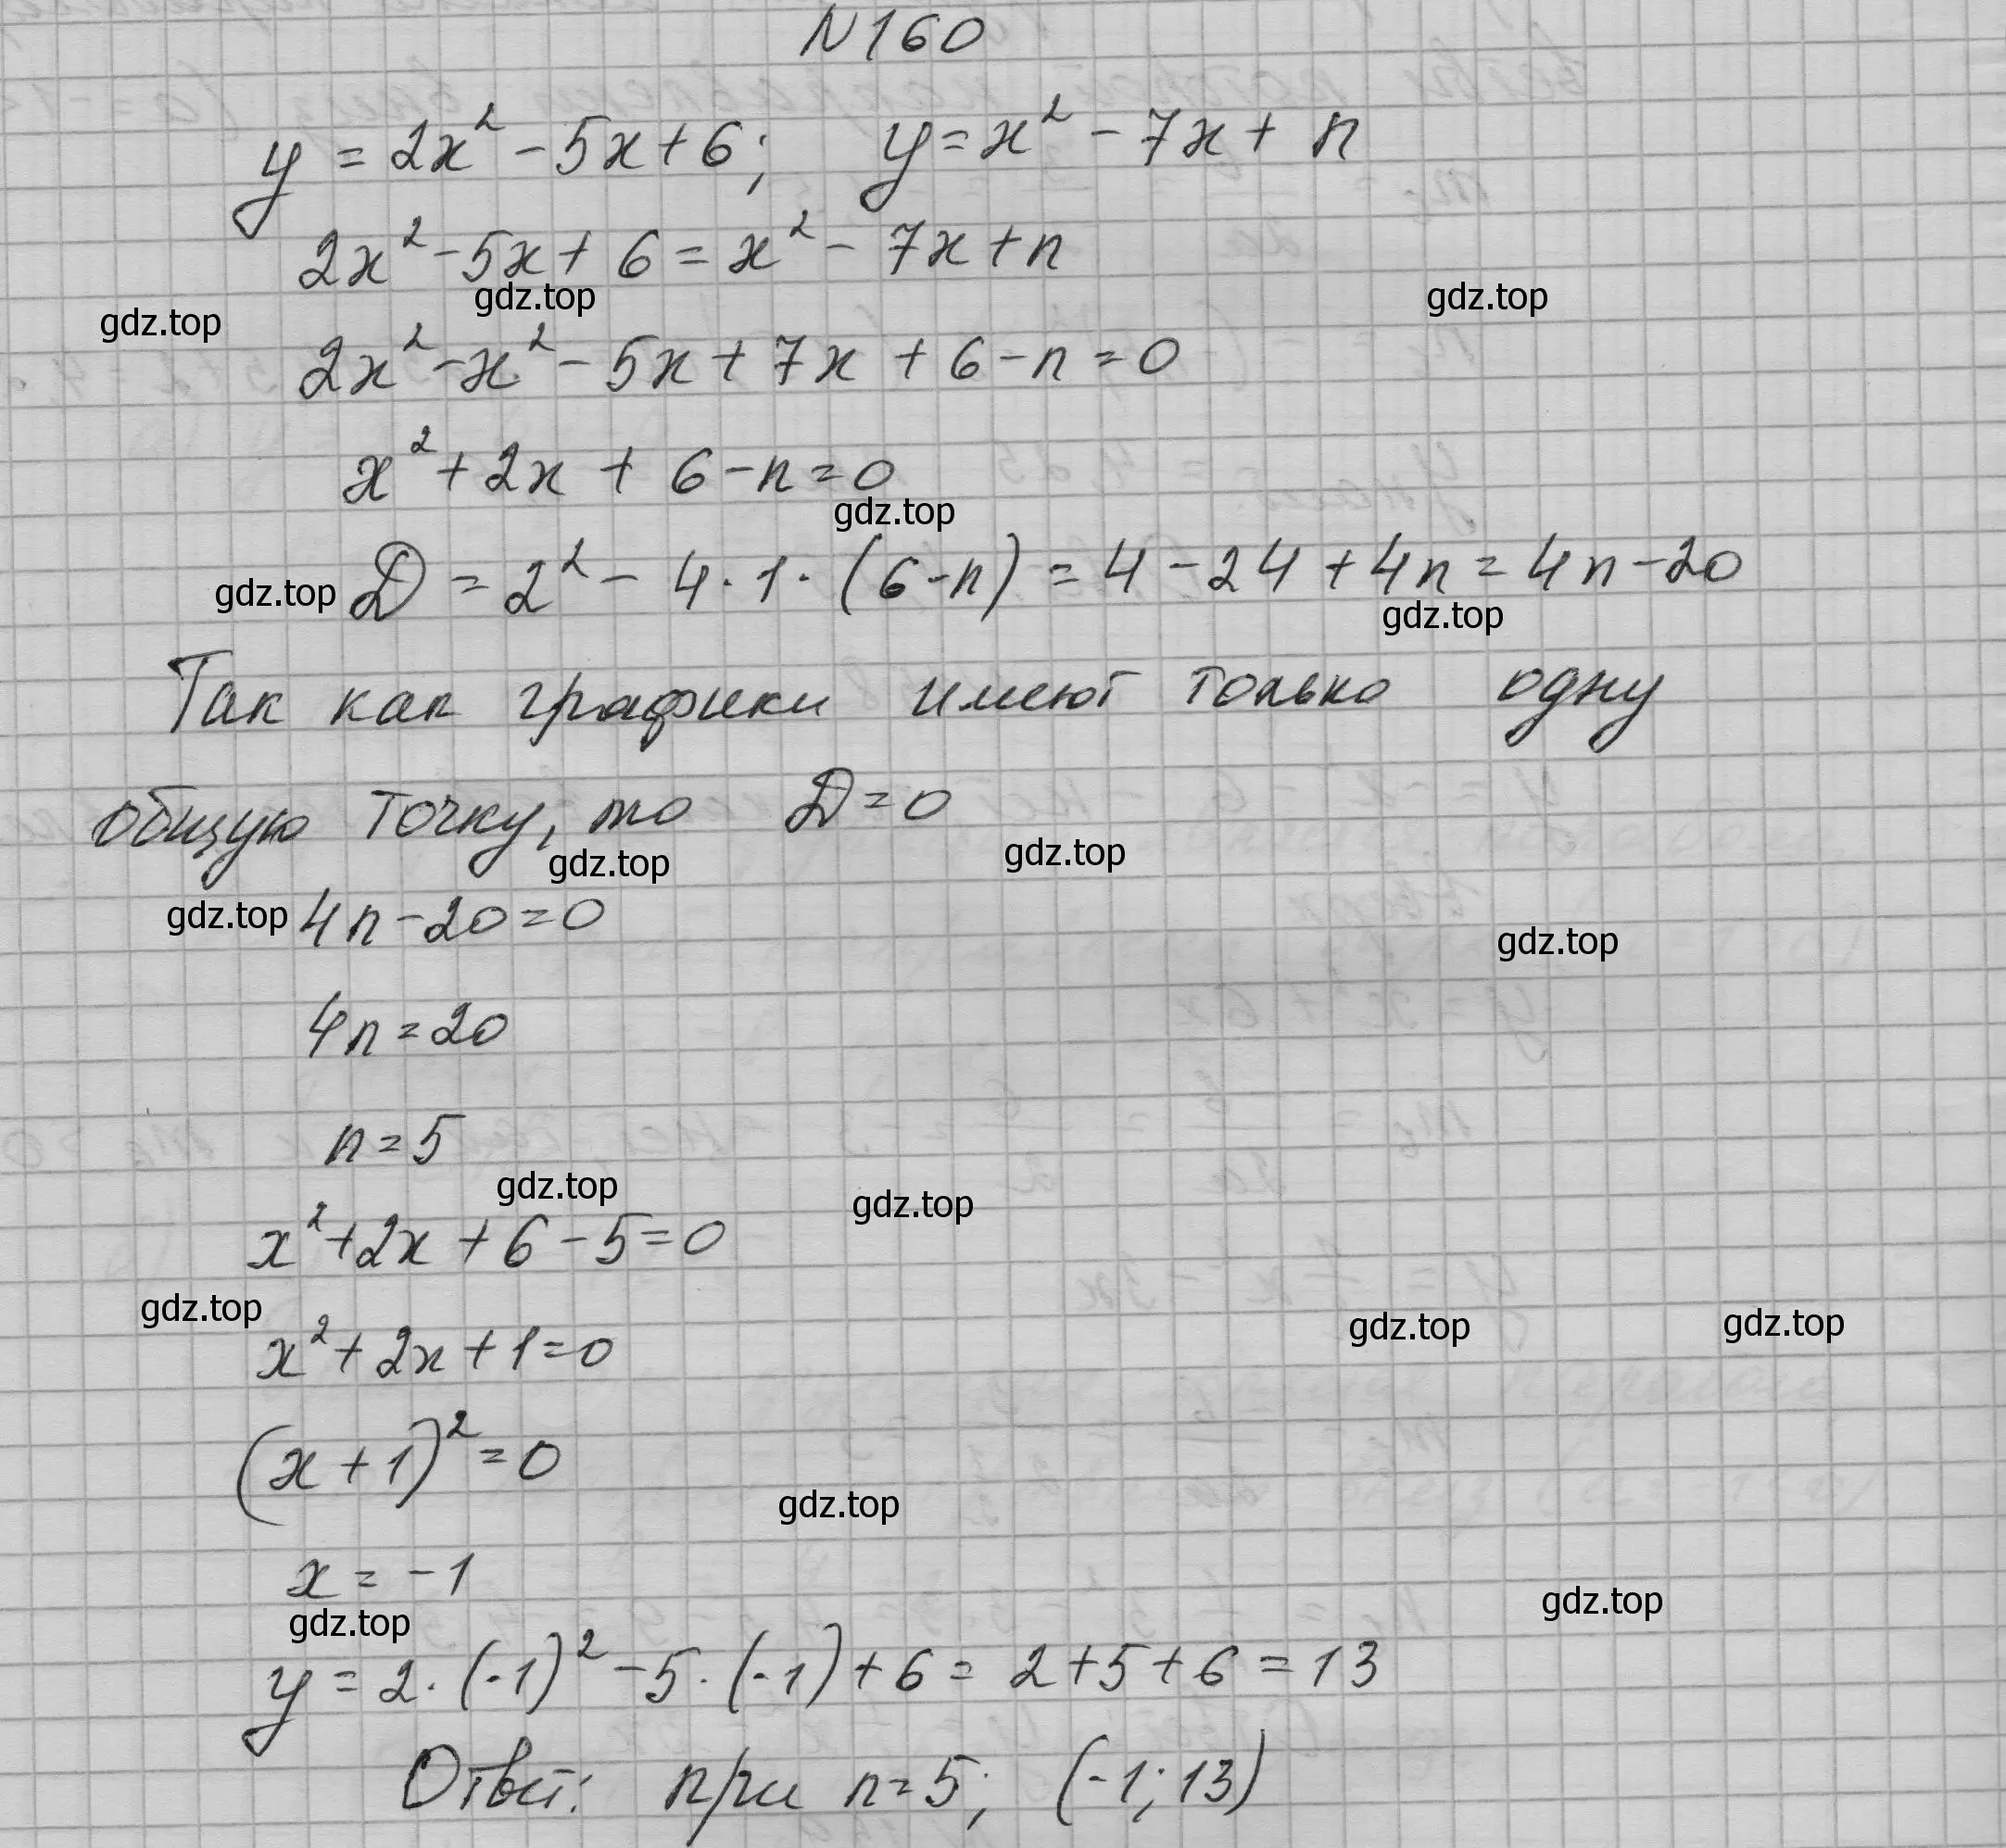 N160
y = 2x² - 5x + 6; y = x² - 7x + n
2x² - 5x + 6 = x² - 7x + n
gdz.top gdz.top gdz.top
2x² - x² - 5x + 7x + 6 - n = 0
x² + 2x + 6 - n = 0
gdz.top
gdz.top D = 2² - 4 · 1 · (6 - n) = 4 - 24 + 4n = 4n - 20
gdz.top
Так как графики имеют только одну
общую точку, то D = 0
gdz.top gdz.top
gdz.top 4n - 20 = 0
gdz.top
4n = 20
n = 5
gdz.top gdz.top
x² + 2x + 6 - 5 = 0
gdz.top gdz.top gdz.top
x² + 2x + 1 = 0
(x + 1)² = 0
gdz.top
x = -1
gdz.top gdz.top
y = 2 · (-1)² - 5 · (-1) + 6 = 2 + 5 + 6 = 13
Ответ: при n = 5; (-1; 13)